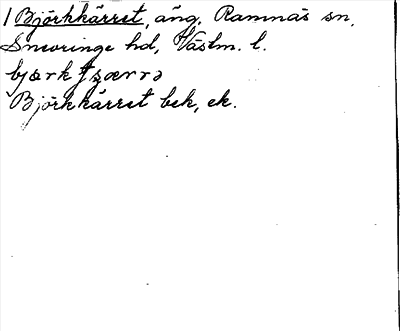 1 Björkkärret, äng, Ramnäs sn,
Snevringe hd, Västm. l.
Björkkärret bek, ek.